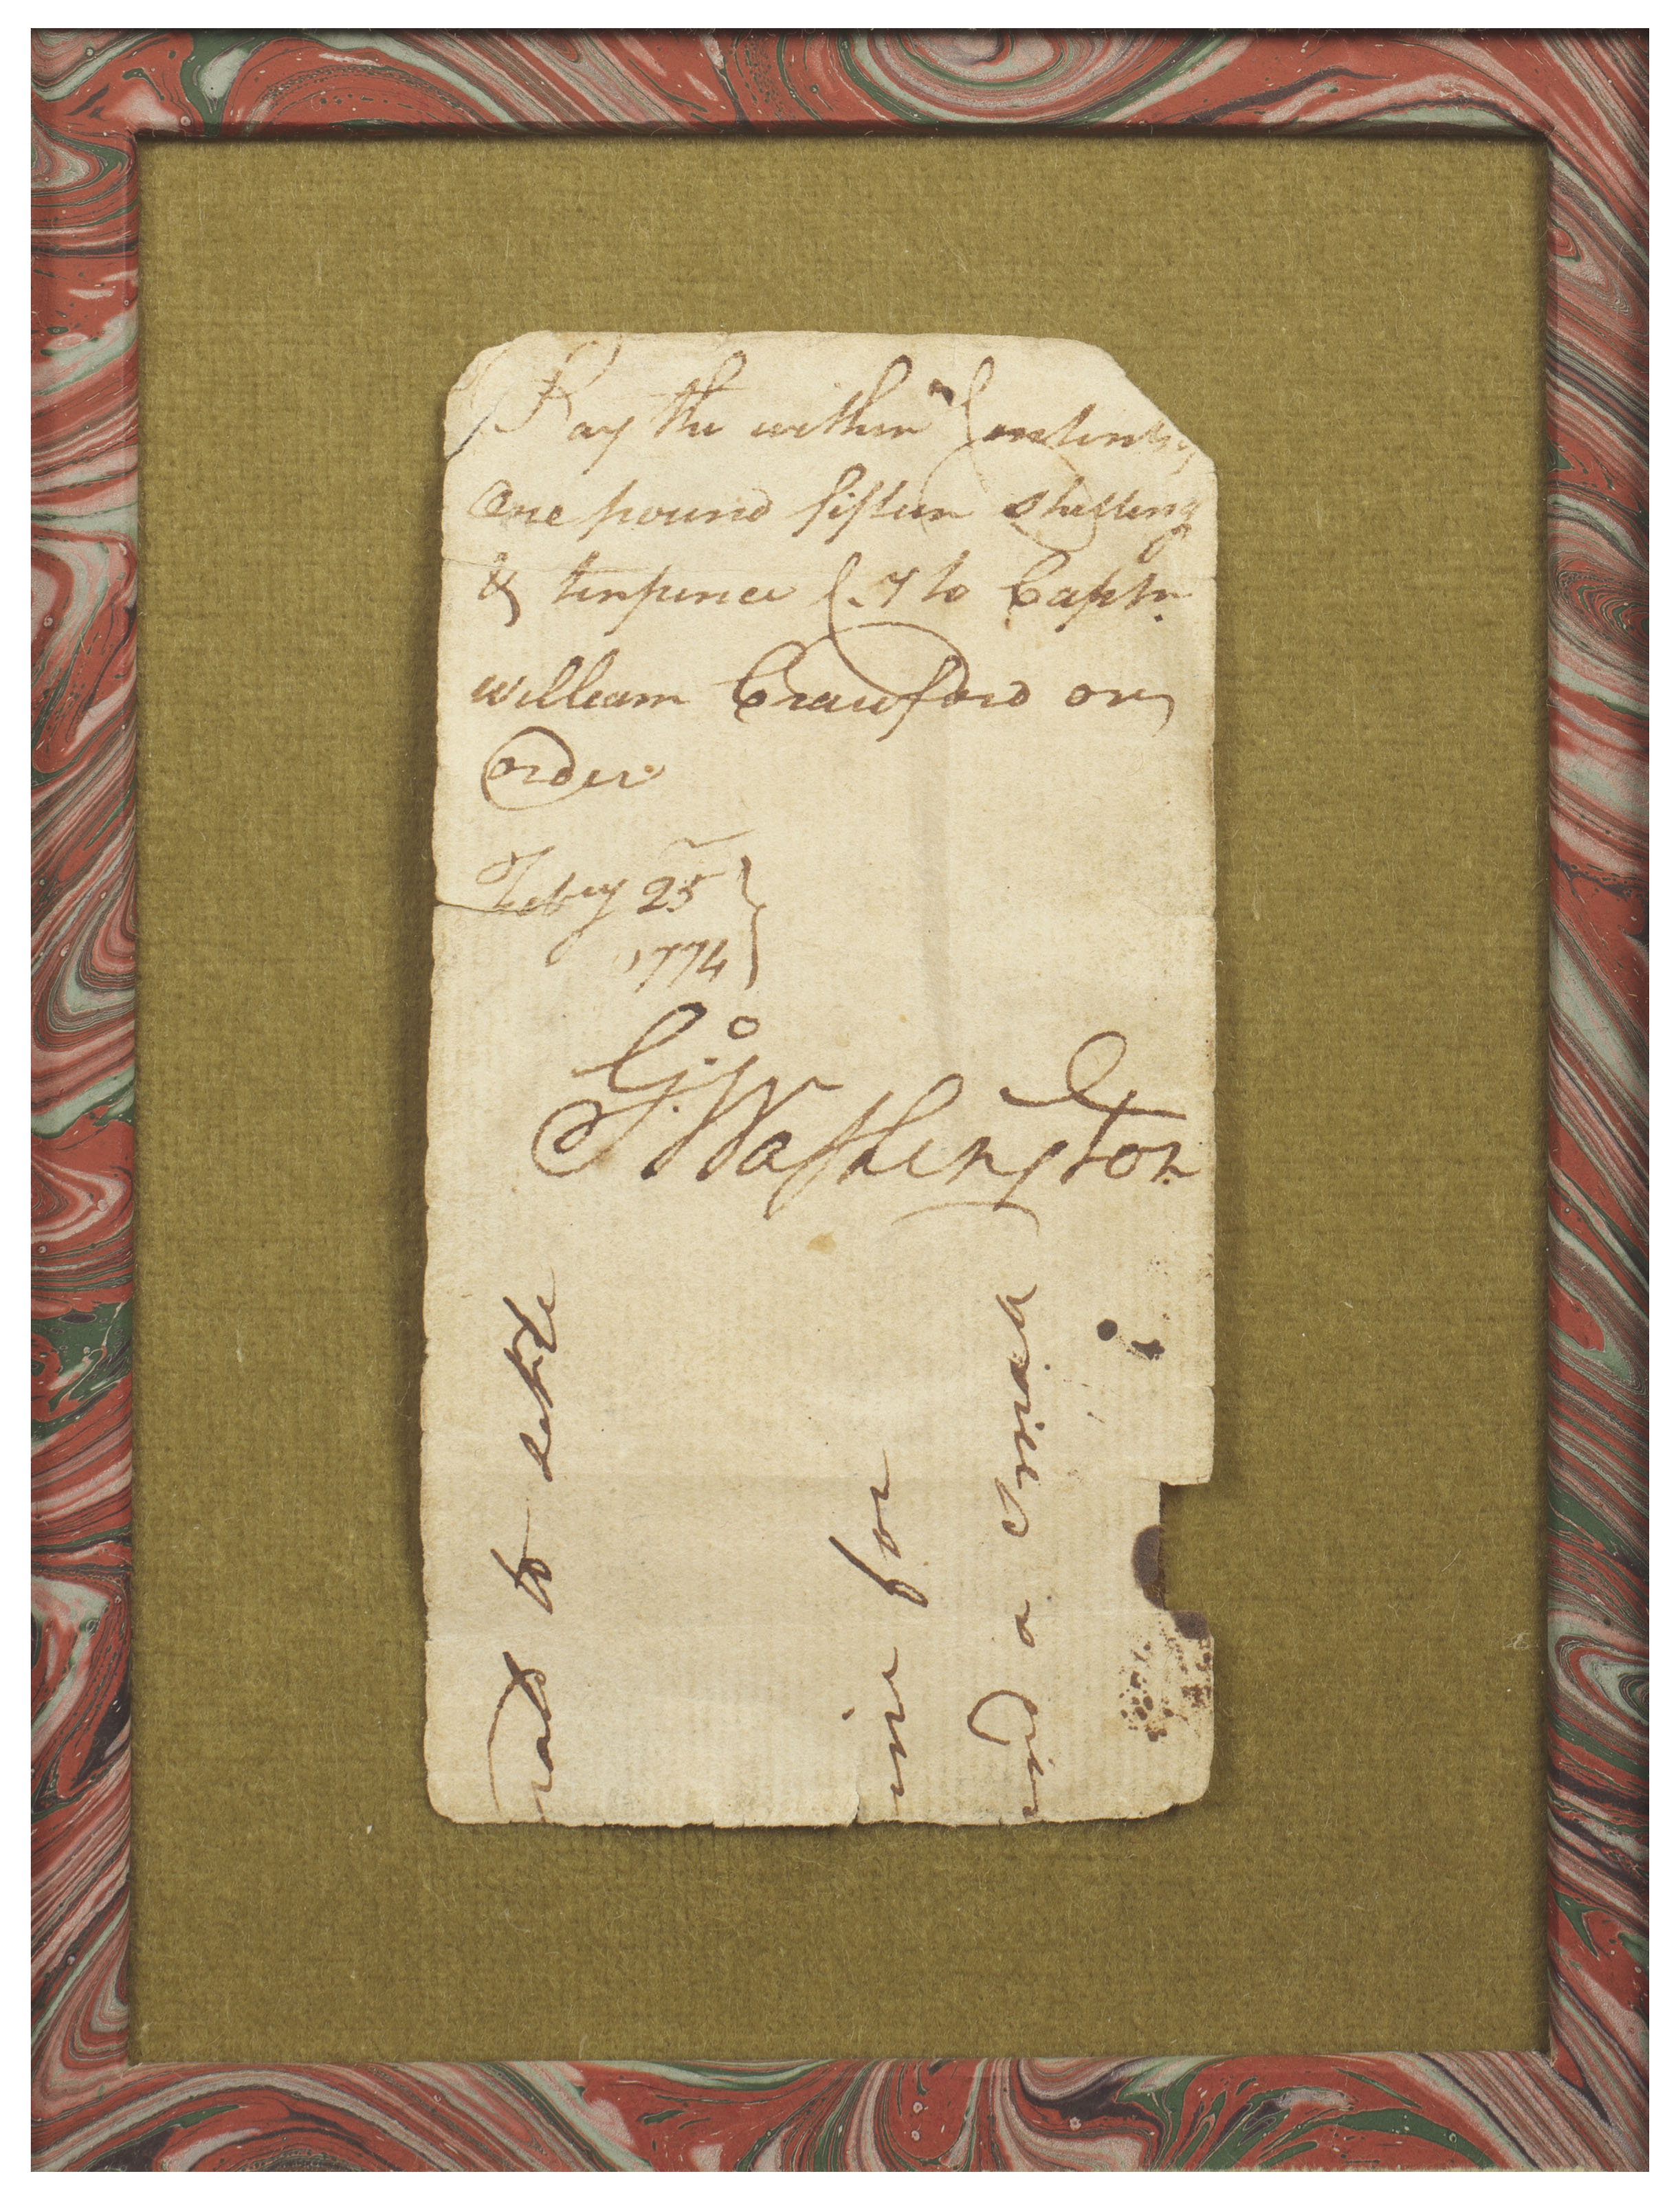 Pay the within contents
One pound fifteen shilling
& tenpence to Captn.
William Crawford or
order
Feby 25
1774
Go: Washington
to settle
for